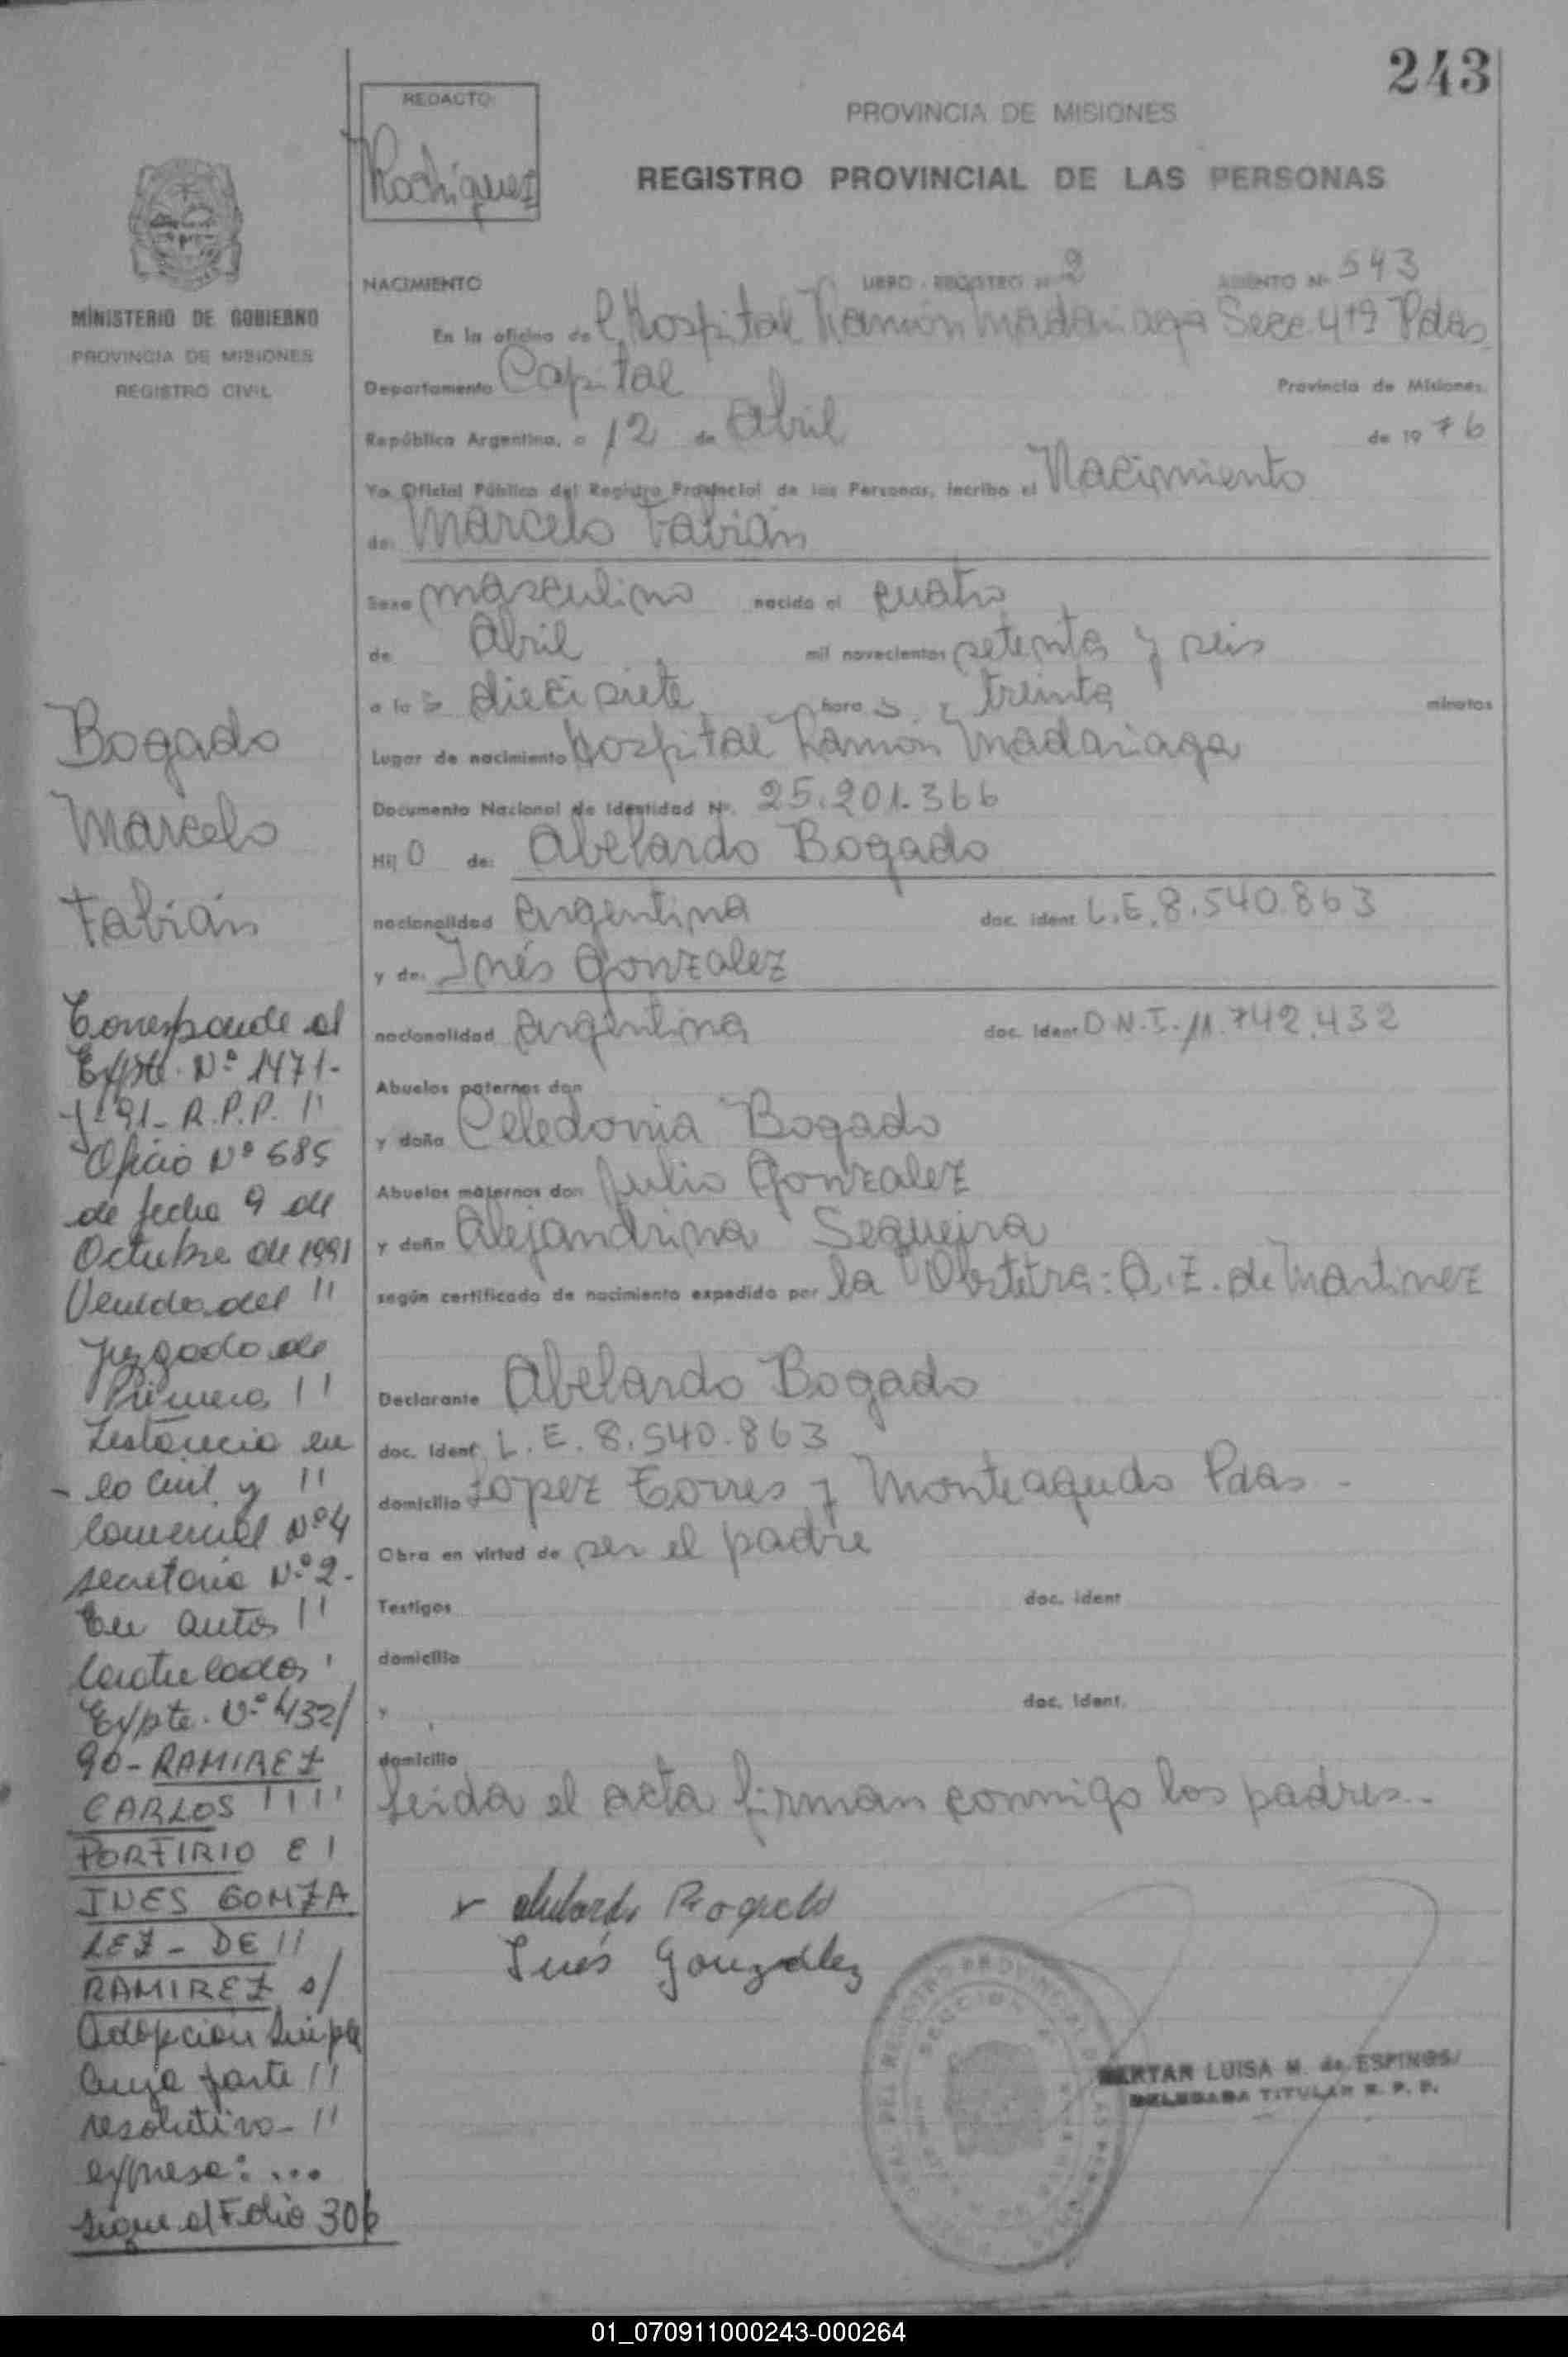 243
REDACTO
Rodriguez
PROVINCIA DE MISIONES
REGISTRO PROVINCIAL DE LAS PERSONAS
MINISTERIO DE GOBIERNO
PROVINCIA DE MISIONES
REGISTRO CIVIL
NACIMIENTO LIBRO - REGISTRO Nº 2 ASIENTO Nº 543
En la oficina de l Hospital Ramón Madariaga Secc. 4ta Pdas.
Departamento Capital Provincia de Misiones,
República Argentina, a 12 de Abril de 19 76
Yo Oficial Público del Registro Provincial de las Personas, incribo el Nacimiento
de: Marcelo Fabián
Sexo masculino nacido el cuatro
de Abril mil novecientos setenta y seis
a la s diecisiete hora s y treinta minutos
Lugar de nacimiento Hospital Ramon Madariaga
Documento Nacional de Identidad Nº. 25.201.366
Hij o de: Abelardo Bogado
nacionalidad argentina doc. ident L.E. 8.540.863
y de: Inés Gonzalez
nacionalidad argentina doc. ident D.N.I. 11.742.432
Abuelos paternos don
y doña Celedonia Bogado
Abuelos maternos don Julio Gonzalez
y doña Alejandrina Sequeira
según certificado de nacimiento expedido por la Obstetra: A. Z. de Martinez
Declarante Abelardo Bogado
doc. ident L.E. 8.540.863
domicilio Lopez Torres y Monteagudo Pdas -
Obra en virtud de ser el padre
Testigos doc. ident
domicilio
y doc. ident.
domicilio
Leida el acta firman conmigo los padres.-
Abelardo Bogado
Inés González
BERTAR LUISA M. de ESPINOS
DELEGADA TITULAR R. P. P.
Bogado
Marcelo
Fabián
Corresponde al
Expte. Nº 1471-
J-91- R.P.P. ''
Oficio Nº 685
de fecha 9 de
Octubre de 1991
Venido del ''
Juzgado de
Primera ''
Instancia en
- lo Civil y ''
Comercial Nº 4
secretaria Nº 2-
En autos ''
Caratulados '
Expte. Nº 432/
90- RAMIREZ
CARLOS ''''
PORFIRIO E '
INES GONZA
LEZ - DE ''
RAMIREZ s/
Adopción Simple
Cuya parte ''
resolutiva- ''
expresa: ...
Sigue al Folio 306
01_070911000243-000264